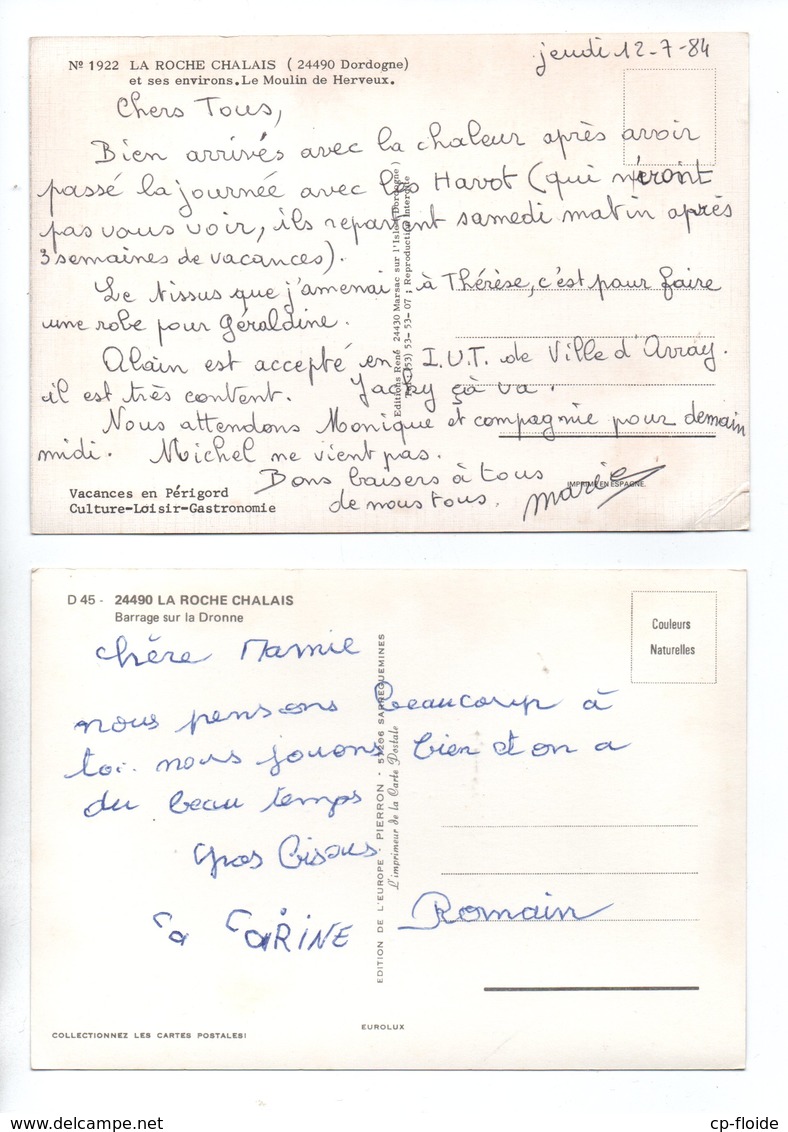 jeudi 12-7-84
Nº 1922 LA ROCHE CHALAIS ( 24490 Dordogne)
et ses environs.Le Moulin de Herveux.
Chers Tous,
Bien arrivés avec la chaleur après avoir
passé la journée avec les Havot (qui n'iront
pas vous voir, ils repartent samedi matin après
3 semaines de vacances).
Le tissus que j'amenai à Thérèse, c'est pour faire
une robe pour Géraldine.
Alain est accepté en I.U.T. de Ville d'Avray.
il est très content. Jacky çà va.
Nous attendons Monique et compagnie pour demain
midi. Michel ne vient pas.
Bons baisers à tous
de nous tous. Marie
IMPRIMÉ EN ESPAGNE.
Vacances en Périgord
Culture-Loisir-Gastronomie
Editions René 24430 Marsac sur l'Isle (Dordogne)
Tél. (53) 53-53-07 ; Reproduction Interdite
D 45 - 24490 LA ROCHE CHALAIS
Barrage sur la Dronne
Couleurs
Naturelles
chère Mamie
nous pensons beaucoup à
toi. nous jouons bien et on a
du beau temps
gros bisous
Ca CaRINE Romain
EDITION DE L'EUROPE - PIERRON - 57206 SARREGUEMINES
L'imprimeur de la Carte Postale
EUROLUX
COLLECTIONNEZ LES CARTES POSTALES!
cp-floide